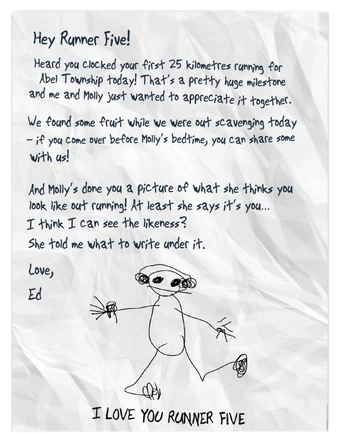 Hey Runner Five!
Heard you clocked your first 25 kilometres running for
Abel Township today! That's a pretty huge milestone
and me and Molly just wanted to appreciate it together.
We found some fruit while we were out scavenging today
- if you come over before Molly's bedtime, you can share some
with us!
And Molly's done you a picture of what she thinks you
look like out running! At least she says it's you...
I think I can see the likeness?
She told me what to write under it.
Love,
Ed
I LOVE YOU RUNNER FIVE